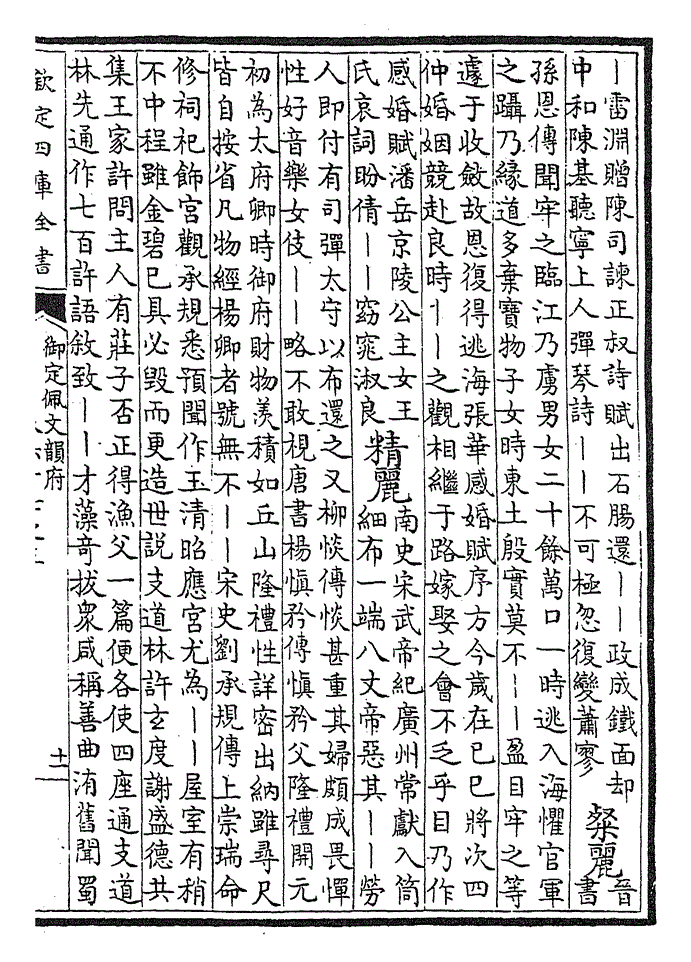 ｜雷淵贈陳司諫正叔詩賦出石腸還｜｜政成鐵面却
中和陳基聽寧上人彈琴詩｜｜不可極忽復變蕭寥
粲麗
晉
書
孫恩傳聞牢之臨江乃虜男女二十餘萬口一時逃入海懼官軍
之躡乃緣道多棄寶物子女時東土殷實莫不｜｜盈目牢之等
遽于收斂故恩復得逃海張華感婚賦序方今歲在己巳將次四
仲婚姻競赴良時｜｜之觀相繼于路嫁娶之會不乏乎目乃作
感婚賦潘岳京陵公主女王
氏哀詞盼倩｜｜窈窕淑良
精麗
南史宋武帝紀廣州常獻入筒
細布一端八丈帝惡其｜｜勞
人即付有司彈太守以布還之又柳惔傳惔甚重其婦頗成畏憚
性好音樂女伎｜｜略不敢視唐書楊慎矜傳慎矜父隆禮開元
初為太府卿時御府財物羨積如丘山隆禮性詳密出納雖尋尺
皆自按省凡物經楊卿者號無不｜｜宋史劉承規傳上崇瑞命
修祠祀飾宮觀承規悉預聞作玉清昭應宮尤為｜｜屋室有稍
不中程雖金碧已具必毀而更造世說支道林許玄度謝盛德共
集王家許問主人有莊子否正得漁父一篇便各使四座通支道
林先通作七百許語敘致｜｜才藻奇拔衆咸稱善曲洧舊聞蜀
欽定四庫全書
御定佩文韻府
十一